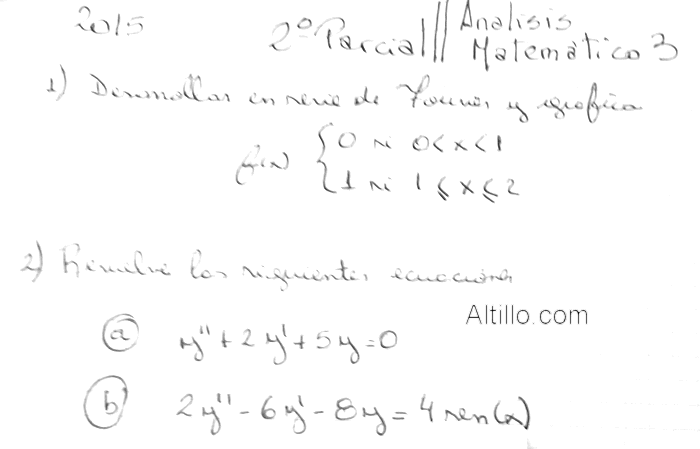 2015 2º Parcial || Analisis Matemático 3
1) Desarrollar en serie de Fourier y grafica
f(x) { 0 si 0<x<1
1 si 1≤x≤2
2) Resolve las siguientes ecuaciones
Altillo.com
a y''+2y'+5y=0
b 2y''-6y'-8y=4 sen(x)